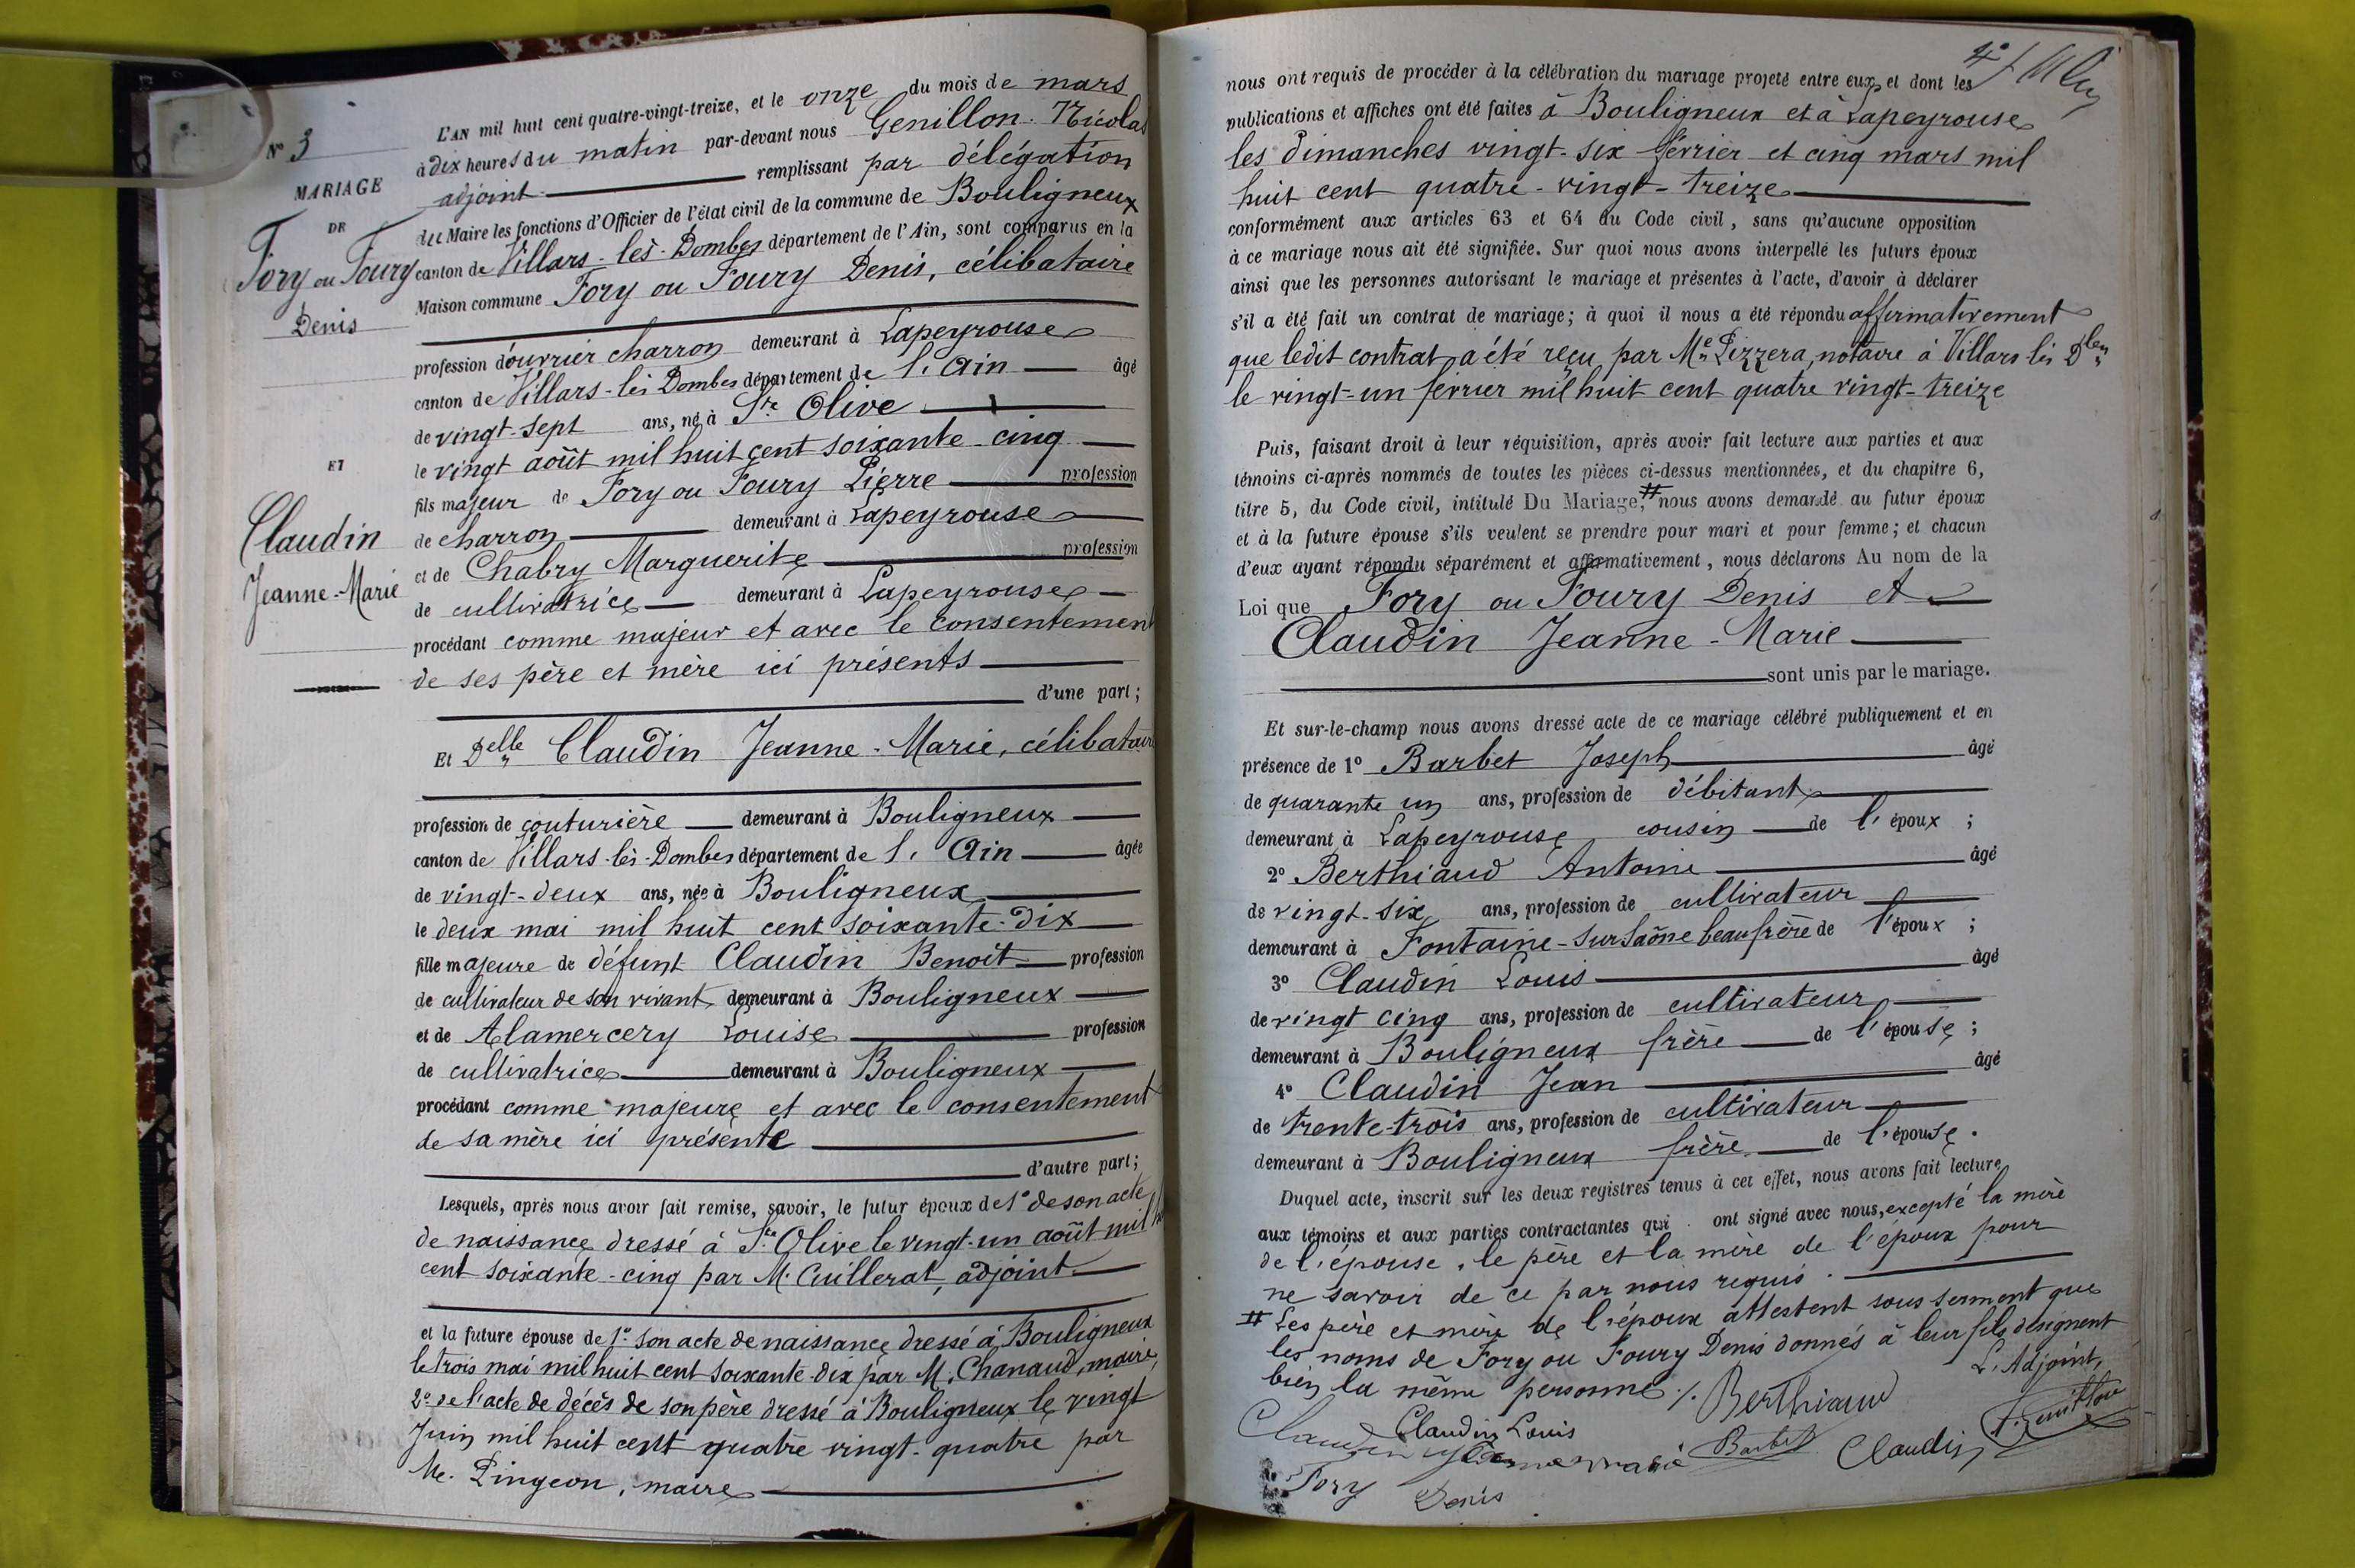 N° 3
MARIAGE
DE
Fory ou Foury
Denis
ET
Claudin
Jeanne-Marie
L'AN mil huit cent quatre-vingt-treize, et le onze du mois de mars
à dix heures du matin par-devant nous Genillon Nicolas
adjoint remplissant par délégation
du Maire les fonctions d'Officier de l'état civil de la commune de Bouligneux
canton de Villars-les-Dombes département de l'Ain, sont comparus en la
Maison commune Fory ou Foury Denis, célibataire
profession d'ouvrier charron demeurant à Lapeyrouse
canton de Villars-lès-Dombes département de l'Ain âgé
de vingt-sept ans, né à Ste Olive
le vingt août mil huit cent soixante-cinq
fils majeur de Fory ou Foury Pierre profession
de charron demeurant à Lapeyrouse
et de Chabry Marguerite profession
de cultivatrice demeurant à Lapeyrouse
procédant comme majeur et avec le consentement
de ses père et mère ici présents
d'une part;
Et Delle Claudin Jeanne-Marie, célibataire
profession de couturière demeurant à Bouligneux
canton de Villars-lès-Dombes département de l'Ain âgée
de vingt-deux ans, née à Bouligneux
le deux mai mil huit cent soixante-dix
fille majeure de défunt Claudin Benoit profession
de cultivateur de son vivant demeurant à Bouligneux
et de Alamercery Louise profession
de cultivatrice demeurant à Bouligneux
procédant comme majeure et avec le consentement
de sa mère ici présente
d'autre part;
Lesquels, après nous avoir fait remise, savoir, le futur époux de 1° de son acte
de naissance dressé à Ste Olive le vingt-un août mil
cent soixante-cinq par M. Cuillerat, adjoint
et la future épouse de 1° son acte de naissance dressé à Bouligneux
le trois mai mil huit cent soixante-dix par M. Chanaud, maire,
2° de l'acte de décès de son père dressé à Bouligneux le vingt
Juin mil huit cent quatre vingt-quatre par
M. Pingeon, maire
4°
nous ont requis de procéder à la célébration du mariage projeté entre eux, et dont les
publications et affiches ont été faites à Bouligneux et à Lapeyrouse
les dimanches vingt-six février et cinq mars mil
huit cent quatre-vingt-treize
conformément aux articles 63 et 64 du Code civil, sans qu'aucune opposition
à ce mariage nous ait été signifiée. Sur quoi nous avons interpellé les futurs époux
ainsi que les personnes autorisant le mariage et présentes à l'acte, d'avoir à déclarer
s'il a été fait un contrat de mariage; à quoi il nous a été répondu affirmativement
que ledit contrat a été reçu par Me Pizzera, notaire à Villars lès Dbes
le vingt-un février mil huit cent quatre vingt-treize
Puis, faisant droit à leur réquisition, après avoir fait lecture aux parties et aux
témoins ci-après nommés de toutes les pièces ci-dessus mentionnées, et du chapitre 6,
titre 5, du Code civil, intitulé Du Mariage, # nous avons demandé au futur époux
et à la future épouse s'ils veulent se prendre pour mari et pour femme; et chacun
d'eux ayant répondu séparément et affirmativement, nous déclarons Au nom de la
Loi que Fory ou Foury Denis et
Claudin Jeanne-Marie
sont unis par le mariage.
Et sur-le-champ nous avons dressé acte de ce mariage célébré publiquement et en
présence de 1° Barbet Joseph âgé
de quarante un ans, profession de débitant
demeurant à Lapeyrouse cousin de l'époux ;
2° Berthiaud Antoine âgé
de vingt-six ans, profession de cultivateur
demeurant à Fontaine-sur Saône beau frère de l'époux ;
3° Claudin Louis âgé
de vingt cinq ans, profession de cultivateur
demeurant à Bouligneux frère de l'épouse ;
4° Claudin Jean âgé
de trente-trois ans, profession de cultivateur
demeurant à Bouligneux frère de l'épouse.
Duquel acte, inscrit sur les deux registres tenus à cet effet, nous avons fait lecture
aux témoins et aux parties contractantes qui ont signé avec nous, excepté la mère
de l'épouse, le père et la mère de l'époux pour
ne savoir de ce par nous requis.
# Les père et mère de l'époux attestent sous serment que
les noms de Fory ou Foury Denis donnés à leur fils désignent
bien la même personne ./.
L'Adjoint,
Berthiaud
Genillon
Claudin Louis
Claudin Jeanne Marie
Barbet
Claudin
Fory Denis